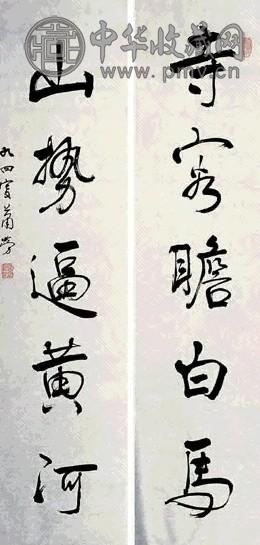 中华收藏网
www.pmv.cn
寺客瞻白馬
山勢逼黃河
九四叟蕭勞